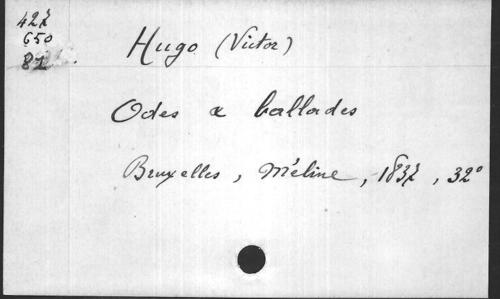 427
650
81
Hugo (Victor)
Odes & ballades
Bruxelles, Méline, 1837, 32°